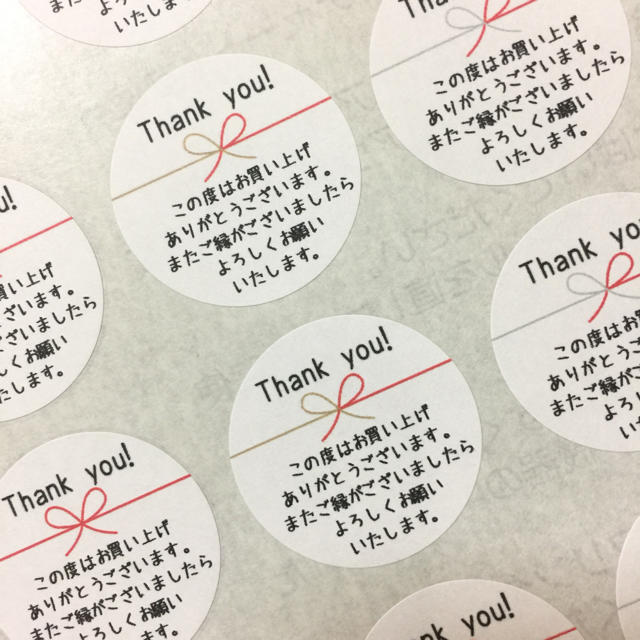 この度はお買い上げ
ありがとうございます。
またご縁がございましたら
よろしくお願い
いたします。
Thank you!
この度はお買い上げ
ありがとうございます。
またご縁がございましたら
よろしくお願い
いたします。
Thank you
この度はお買い
ありがとうござい
またご縁がござい
Thank you!
この度はお買い上げ
ありがとうございます。
またご縁がございましたら
よろしくお願い
いたします。
お買い上げ
ございます。
ざいましたら
しくお願い
たします。
Thank you!
この度はお買い上げ
ありがとうございます。
またご縁がございましたら
よろしくお願い
いたします。
Thank you!